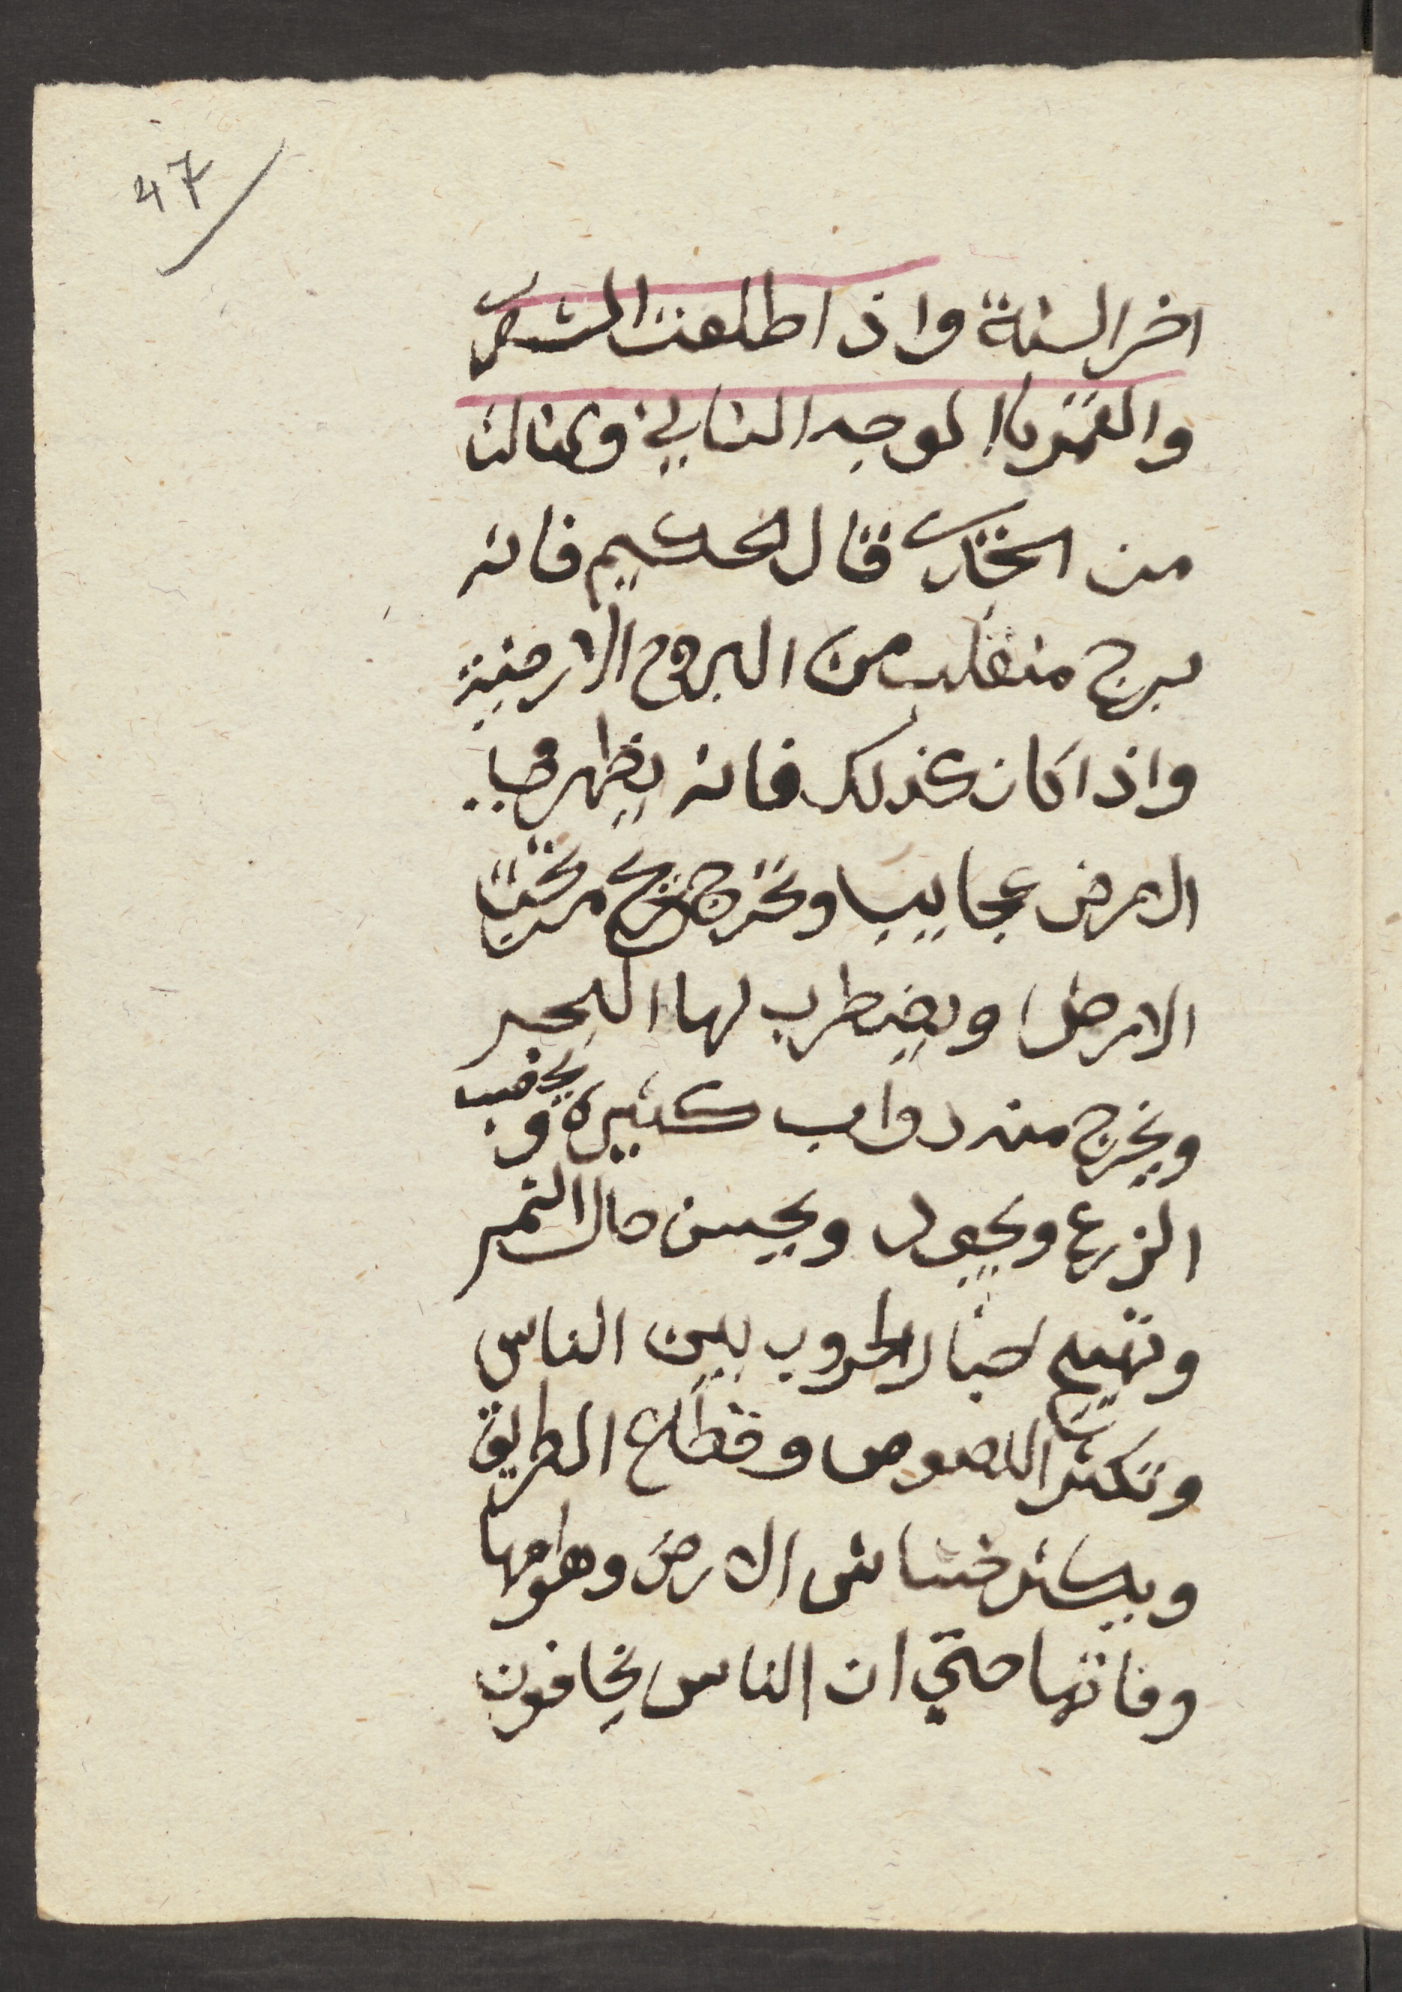 47
اخر السنة واذا طلعت الشمس
والقمر باالوجه الثاني والثالث
من الجدي قال الحكيم فانه
برج منقلب من البروج الارضية
واذا كان كذلك فانه يظهر فيها
الارض عجايب وتخرج من تحت
الارض ويضطرب لها البحر
ويخرج منه دواب كثيرة ويخصب
الزرع ويجود ويحسن حال الثمر
وتهيج اخبار الحروب بين الناس
وتكثر اللصوص وقطاع الطريق
ويكثر خشاش الارض وهوامها
وفاتها حتي ان الناس يخافون